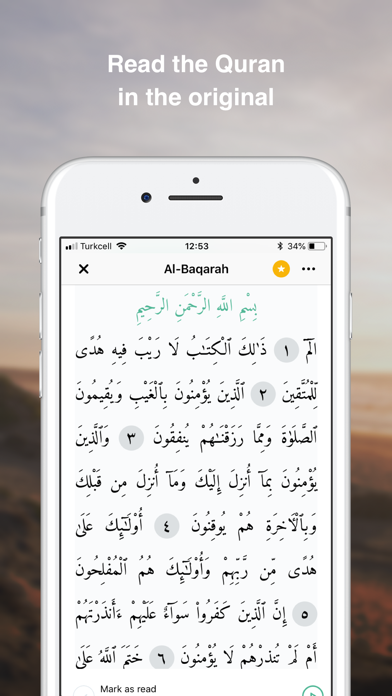 Read the Quran
in the original
Turkcell 12:53 34%
Al-Baqarah
بِسْمِ اللَّهِ الرَّحْمَٰنِ الرَّحِيمِ
الٓمٓ ١ ذَٰلِكَ ٱلْكِتَٰبُ لَا رَيْبَ فِيهِ هُدًى
لِّلْمُتَّقِينَ ٢ ٱلَّذِينَ يُؤْمِنُونَ بِٱلْغَيْبِ وَيُقِيمُونَ
ٱلصَّلَوٰةَ وَمِمَّا رَزَقْنَٰهُمْ يُنفِقُونَ ٣ وَٱلَّذِينَ
يُؤْمِنُونَ بِمَآ أُنزِلَ إِلَيْكَ وَمَآ أُنزِلَ مِن قَبْلِكَ
وَبِٱلْءَاخِرَةِ هُمْ يُوقِنُونَ ٤ أُو۟لَٰٓئِكَ عَلَىٰ
هُدًى مِّن رَّبِّهِمْ وَأُو۟لَٰٓئِكَ هُمُ ٱلْمُفْلِحُونَ
٥ إِنَّ ٱلَّذِينَ كَفَرُوا۟ سَوَآءٌ عَلَيْهِمْ ءَأَنذَرْتَهُمْ
أَمْ لَمْ تُنذِرْهُمْ لَا يُؤْمِنُونَ ٦ خَتَمَ ٱللَّهُ عَلَىٰ
Mark as read